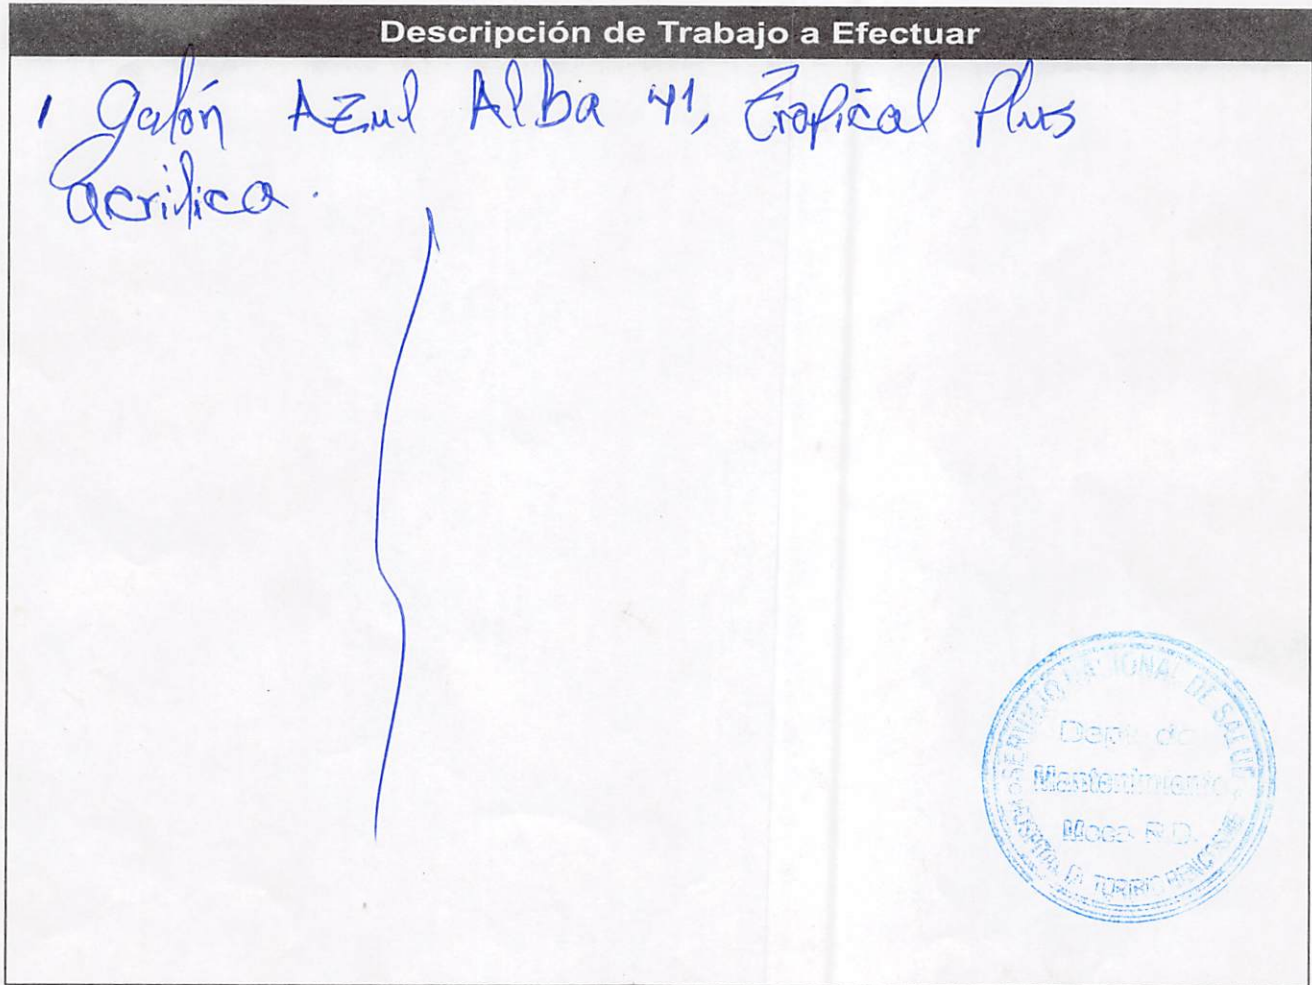 Descripción de Trabajo a Efectuar
1 galón AZul Alba 41, Tropical Plus
acrilica.
SERVICIO NACIONAL DE SALUD
Dept. de
Mantenimiento,
Moca R.D.
HOSPITAL DR. TORIBIO BENCOSME